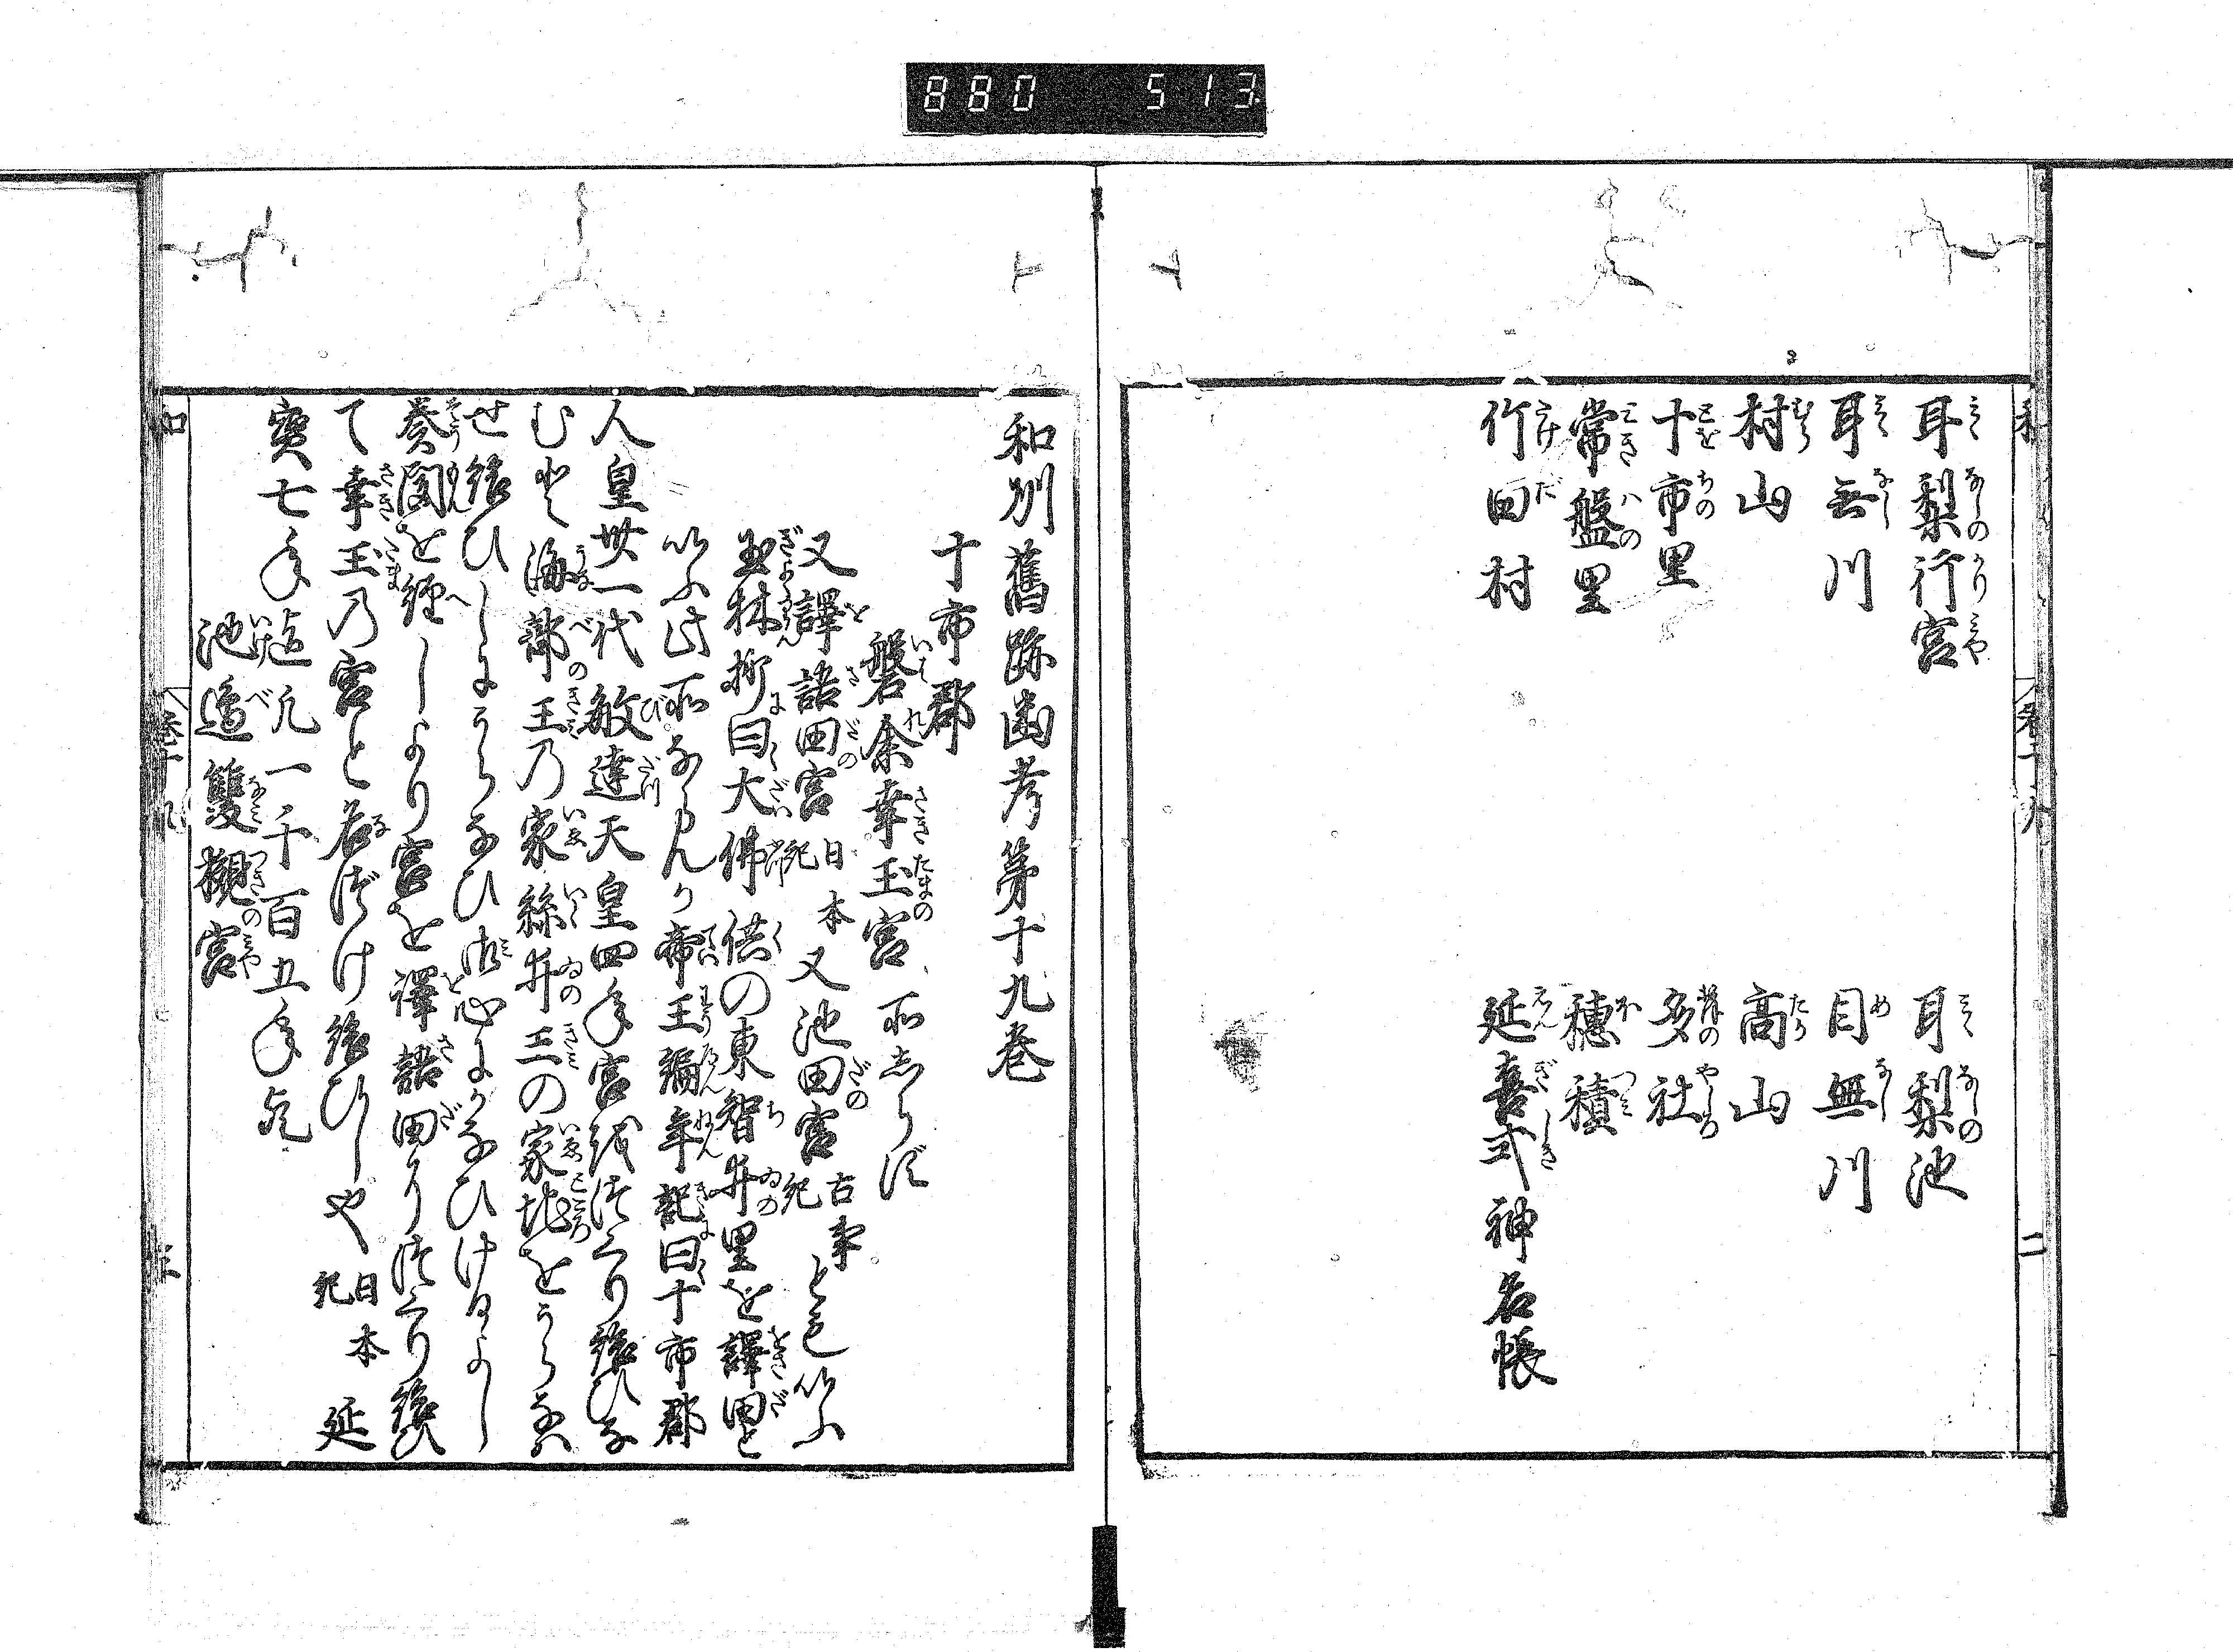 880 513
耳梨行宮
耳無川
村山
十市里
常盤里
竹田村
耳梨池
目無川
高山
多社
穂積
延喜式神名帳
二
和州舊跡幽考第十九巻
十市郡
磐余幸玉宮 所志らず
又譯語田宮 日本紀 又池田宮 古事紀 とも いふ
玉林抄曰大佛供の東智井里を譯田と
いふ此所なりとなん
帝王編年記曰十市郡
人皇丗一代敏達天皇四年宮越つくり給ひな
むと海部王乃家絲井王の家地をうらなハ
せ給ひしにうらなひ御心にかなひけるよし
奏聞を經しより宮を譯語田につくり給ひ
て幸玉乃宮と名づけ給ひしや 日本紀 延
寶七年迄凡一千百五年歟
池邊雙槻宮